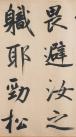 畏避汝之
職耶勁松